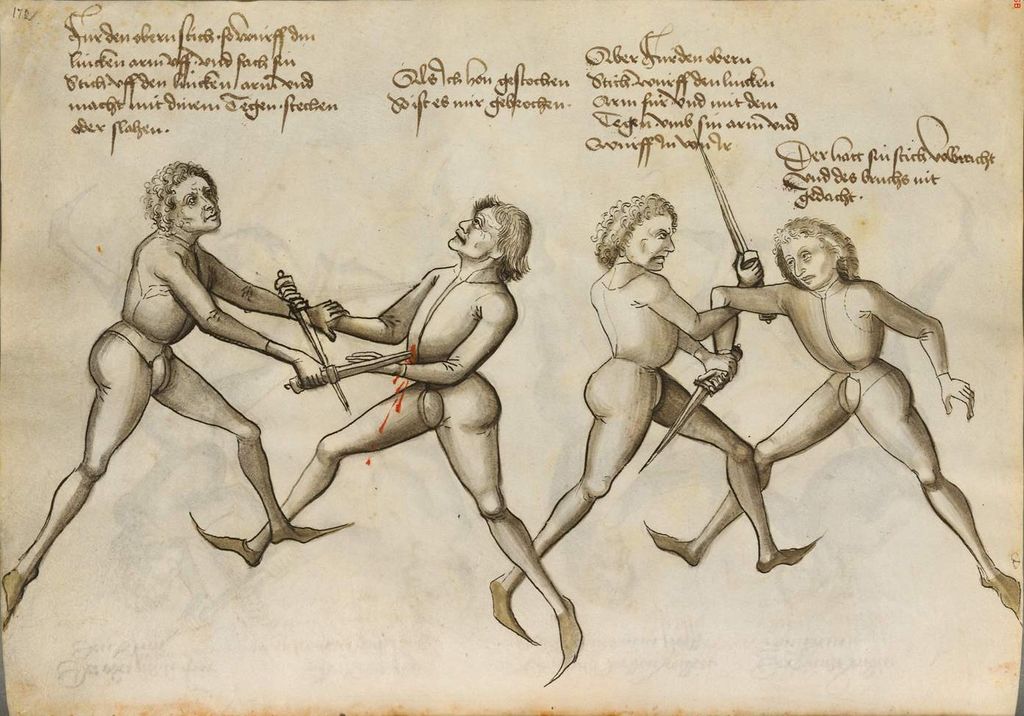 172
Fur den obern stich · so wurff din
lincken arm vff · vnd fach sin
Stich vff den lincken arm vnd
macht mit dinem Tegen · stechen
oder slahen ·
Als ich hon gestochen
So ist es mir gebrochen ·
Aber Fur den obern
Stich wurff den lincken
Arm fur vnd mit dem
Tegen vmb sin arm vnd
wurff In von Ir
Der hatt sin stich volbracht
Vnd des bruchs nit
gedacht ·